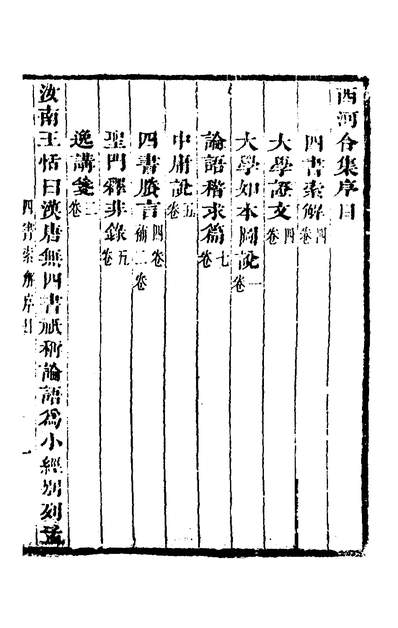 西河合集序目
四書索解四卷
大學證文四卷
大學知本圖說一卷
論語稽求篇七卷
中庸說五卷
四書賸言四卷補二卷
聖門釋非錄五卷
逸講箋三卷
汝南王恬曰漢唐無四書祗稱論語為小經別列孟
四書索解序目
一